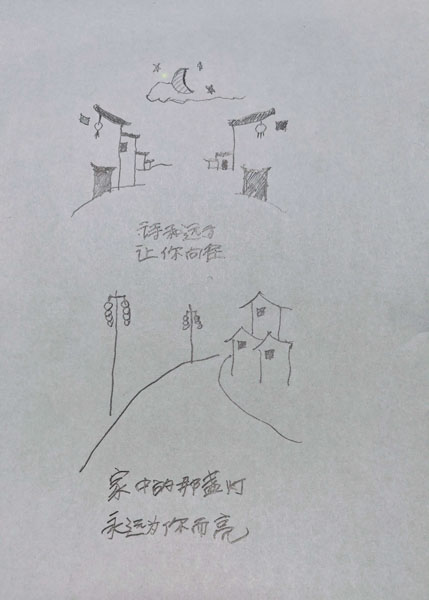 诗和远方
让你向往
家中的那盏灯
永远为你而亮